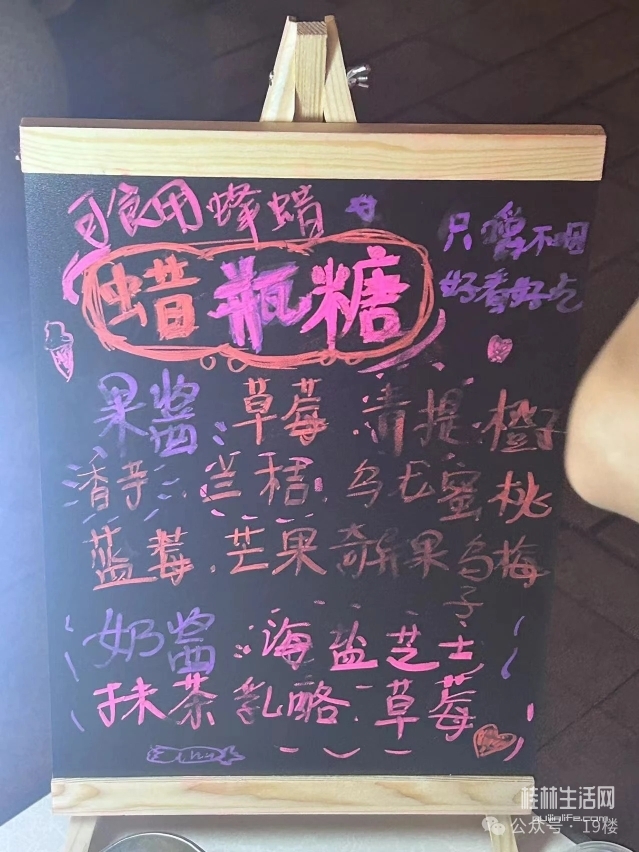 可食用蜂蜡
只嚼不咽
好看好吃
蜡瓶糖
果酱:草莓.青提.橙子
香芋.兰桔.乌龙蜜桃
蓝莓.芒果奇异果乌梅子
奶酱:海盐芝士
抹茶乳咯.草莓
桂林生活网
guilinlife.com
公众号·19楼